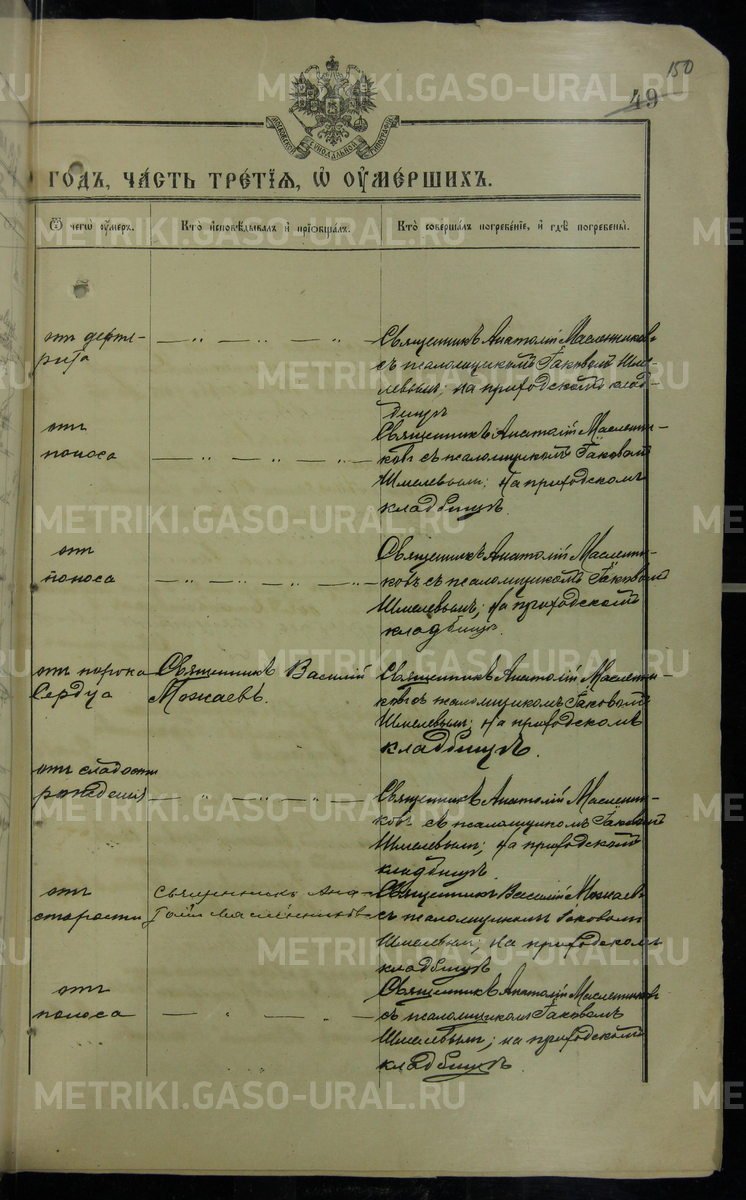 150
49
МОСКОВСКОЙ СѴНОДАЛЬНОЙ ТИПОГРАФІИ
ГОДЪ, ЧА́СТЬ ТРЕ́ТІѦ, Ѡ ОУ҆МЕ́РШИХЪ.
Ѿ чегѡ̀ оу҆́меръ.
Кто̀ и҆сповѣ́дывалъ и҆ прїѡбща́лъ.
Кто̀ соверша́лъ погребе́нїе, и҆ гдѣ̀ погребены̀.
отъ дефте-
рита
Священникъ Анатолій Масленников
съ псаломщикомъ Іаковомъ Шме-
левымъ; на приходскомъ клад-
бищѣ
отъ
поноса
Священникъ Анатолій Масленни-
ковъ съ псаломщикомъ Іаковомъ
Шмелевымъ; на приходскомъ
кладбищѣ.
отъ
поноса
Священникъ Анатолій Масленни-
ковъ съ псаломщикомъ Іаковомъ
Шмелевымъ; на приходскомъ
кладбищѣ.
отъ порока
сердца
Священникъ Василій
Можаевъ.
Священникъ Анатолій Масленни-
ковъ съ псаломщикомъ Іаковомъ
Шмелевымъ; на приходскомъ
кладбищѣ.
отъ слабости
рожденія
Священникъ Анатолій Масленни-
ковъ съ псаломщикомъ Іаковомъ
Шмелевымъ; на приходскомъ
кладбищѣ.
отъ
старости
Священникъ Ана-
толій Масленниковъ
Священникъ Василій Можаевъ
съ псаломщикомъ Іаковомъ
Шмелевым; на приходскомъ
кладбищѣ
отъ
поноса
Священникъ Анатолій Масленников
съ псаломщикомъ Іаковомъ
Шмелевымъ; на приходскомъ
кладбищѣ.
METRIKI.GASO-URAL.RU